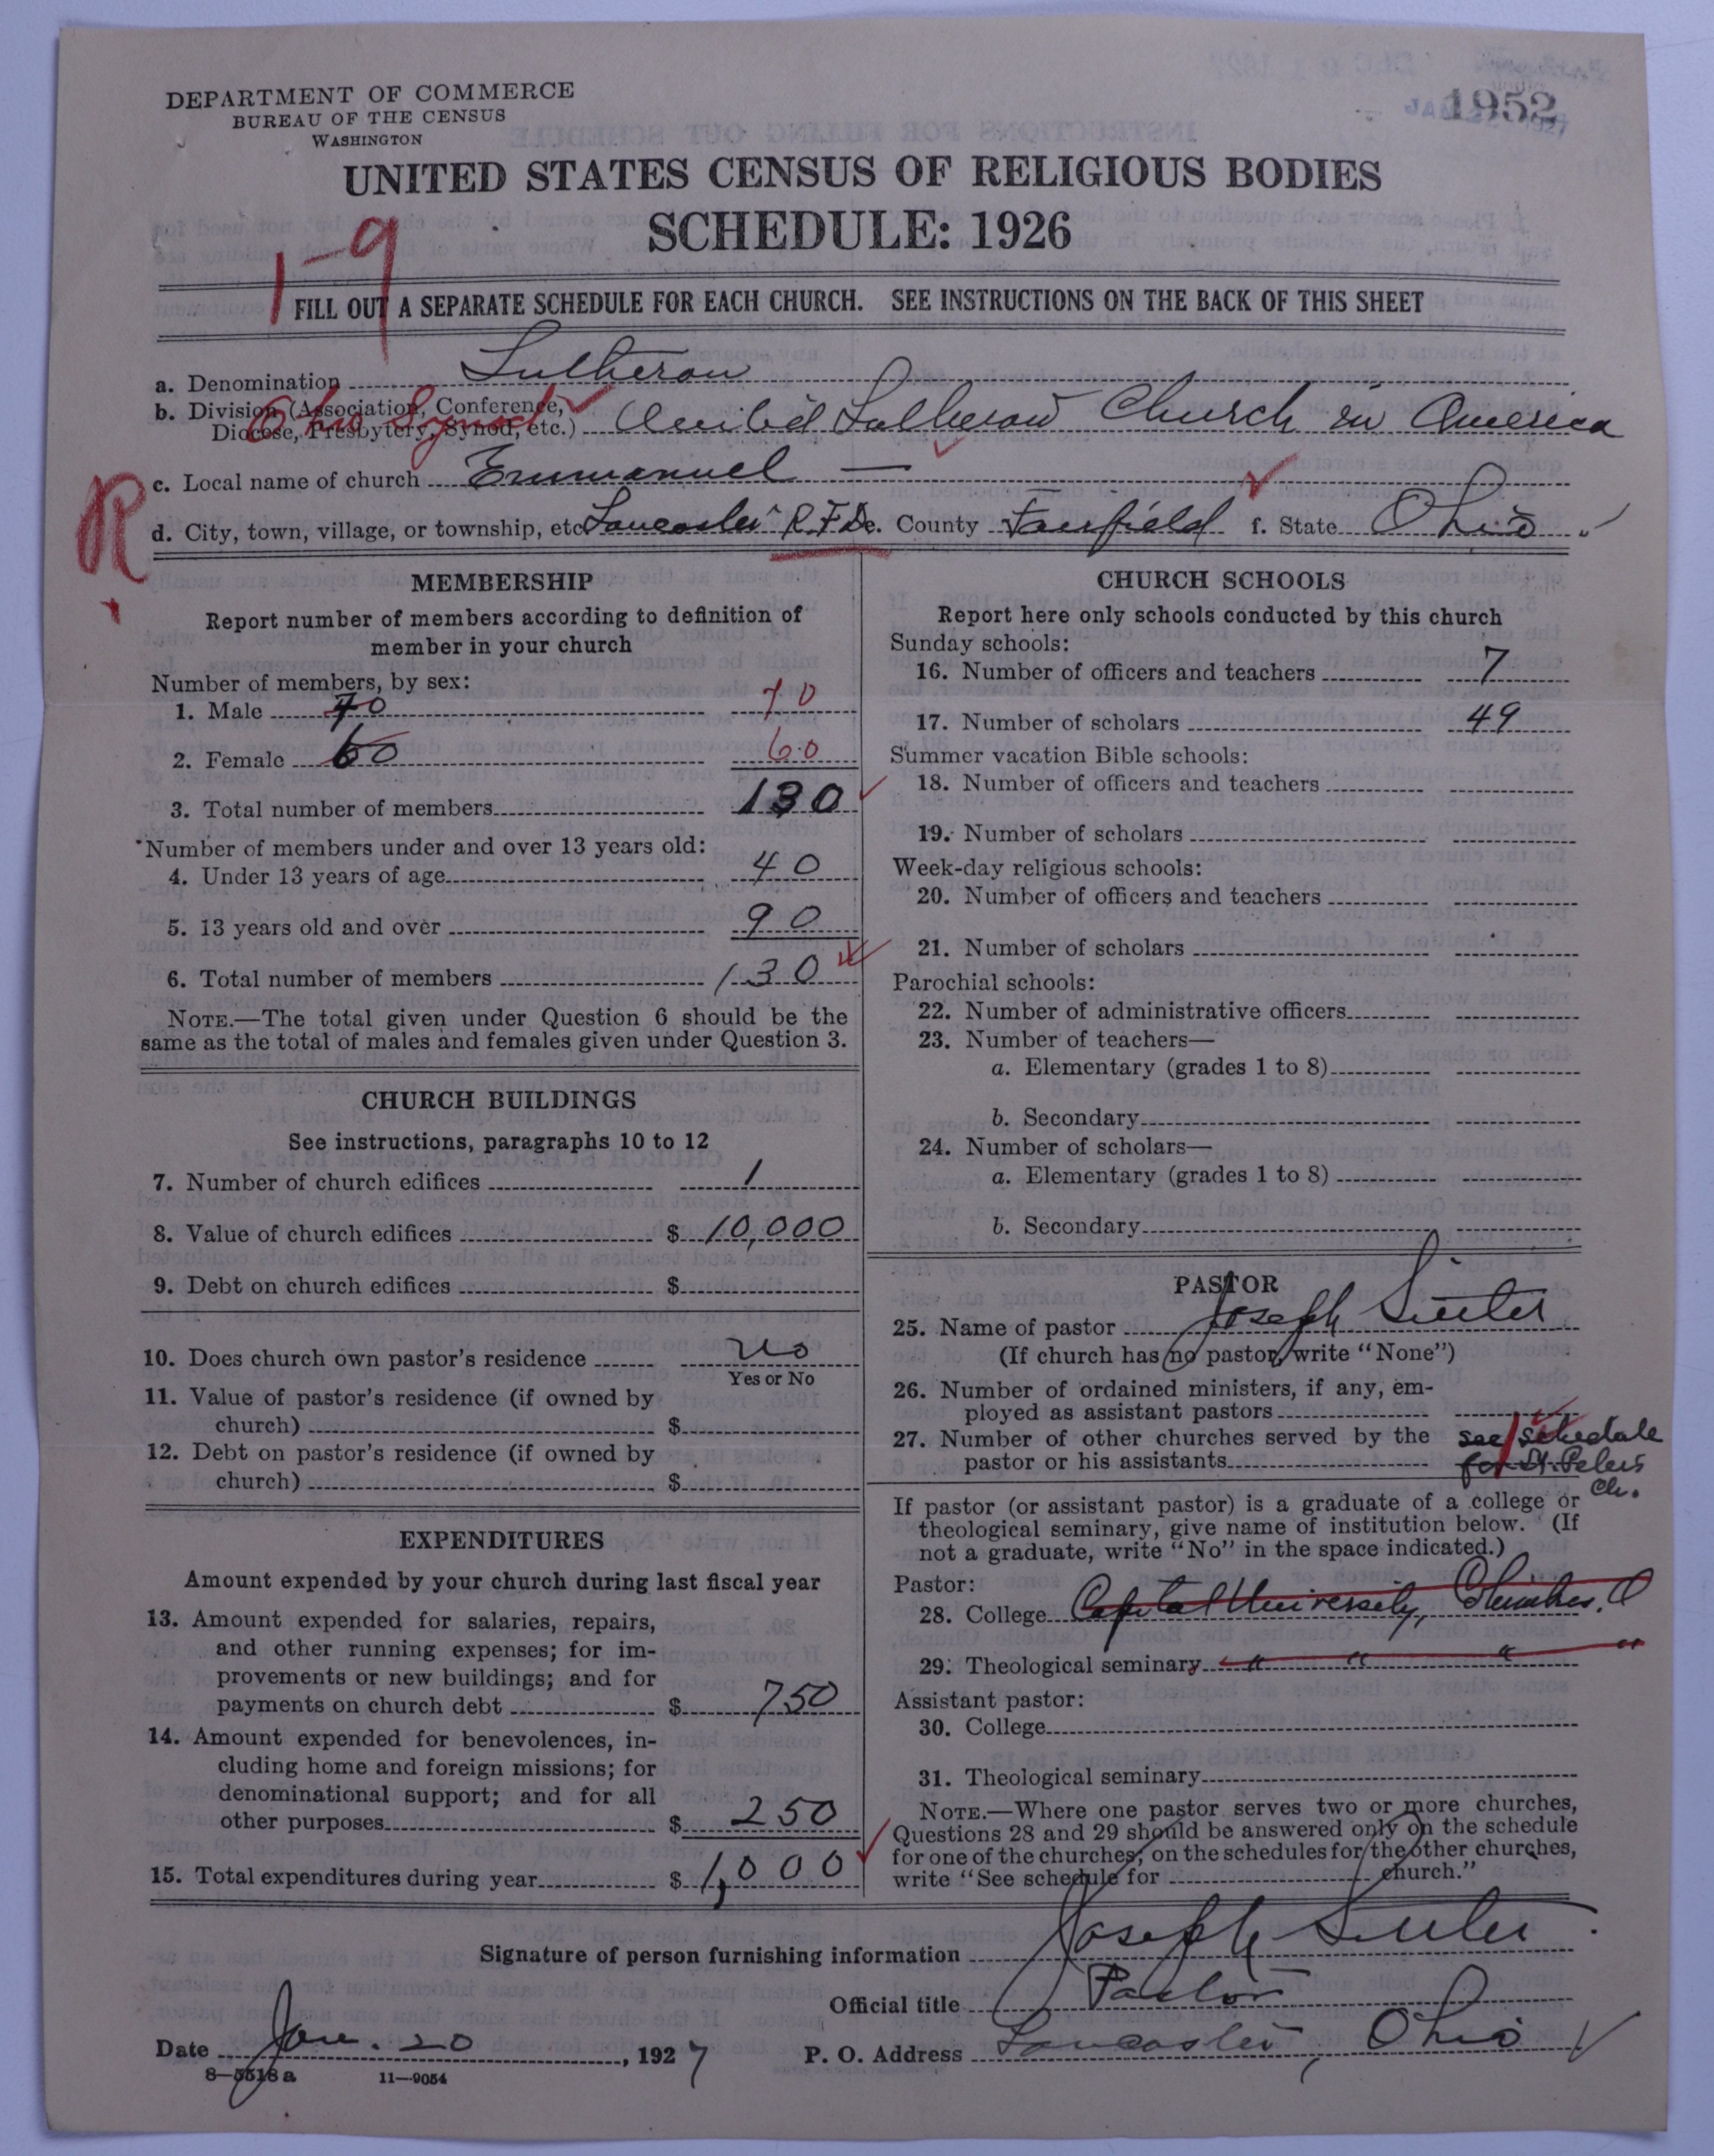 DEPARTMENT OF COMMERCE
BUREAU OF THE CENSUS
WASHINGTON
1952
UNITED STATES CENSUS OF RELIGIOUS BODIES
SCHEDULE: 1926
1-9
FILL OUT A SEPARATE SCHEDULE FOR EACH CHURCH. SEE INSTRUCTIONS ON THE BACK OF THIS SHEET
a. Denomination Lutheran
b. Division (Association, Conference, Diocese, Presbytery, Synod, etc.) United Lutheran Church in America
Ohio Synod
c. Local name of church Emmanuel —
R
d. City, town, village, or township, etc. Lancaster R.F.D. e. County Fairfield f. State Ohio
MEMBERSHIP
Report number of members according to definition of
member in your church
Number of members, by sex:
1. Male 70 70
2. Female 60 60
3. Total number of members 130
Number of members under and over 13 years old:
4. Under 13 years of age 40
5. 13 years old and over 90
6. Total number of members 130
NOTE.—The total given under Question 6 should be the
same as the total of males and females given under Question 3.
CHURCH BUILDINGS
See instructions, paragraphs 10 to 12
7. Number of church edifices 1
8. Value of church edifices $ 10,000
9. Debt on church edifices $
10. Does church own pastor's residence no
Yes or No
11. Value of pastor's residence (if owned by
church) $
12. Debt on pastor's residence (if owned by
church) $
EXPENDITURES
Amount expended by your church during last fiscal year
13. Amount expended for salaries, repairs,
and other running expenses; for im-
provements or new buildings; and for
payments on church debt $ 750
14. Amount expended for benevolences, in-
cluding home and foreign missions; for
denominational support; and for all
other purposes $ 250
15. Total expenditures during year $ 1,000
CHURCH SCHOOLS
Report here only schools conducted by this church
Sunday schools:
16. Number of officers and teachers 7
17. Number of scholars 49
Summer vacation Bible schools:
18. Number of officers and teachers
19. Number of scholars
Week-day religious schools:
20. Number of officers and teachers
21. Number of scholars
Parochial schools:
22. Number of administrative officers
23. Number of teachers—
a. Elementary (grades 1 to 8)
b. Secondary
24. Number of scholars—
a. Elementary (grades 1 to 8)
b. Secondary
PASTOR
25. Name of pastor Joseph Suiter
(If church has no pastor, write "None")
26. Number of ordained ministers, if any, em-
ployed as assistant pastors
27. Number of other churches served by the see schedule
pastor or his assistants for St. Peters
Ch.
If pastor (or assistant pastor) is a graduate of a college or
theological seminary, give name of institution below. (If
not a graduate, write "No" in the space indicated.)
Pastor:
28. College Capital University, Columbus, O
29. Theological seminary " " " "
Assistant pastor:
30. College
31. Theological seminary
NOTE.—Where one pastor serves two or more churches,
Questions 28 and 29 should be answered only on the schedule
for one of the churches; on the schedules for the other churches,
write "See schedule for church."
Signature of person furnishing information Joseph Suiter
Official title Pastor
Date Jan. 20, 1927 P. O. Address Lancaster, Ohio
8—5518a 11—9054